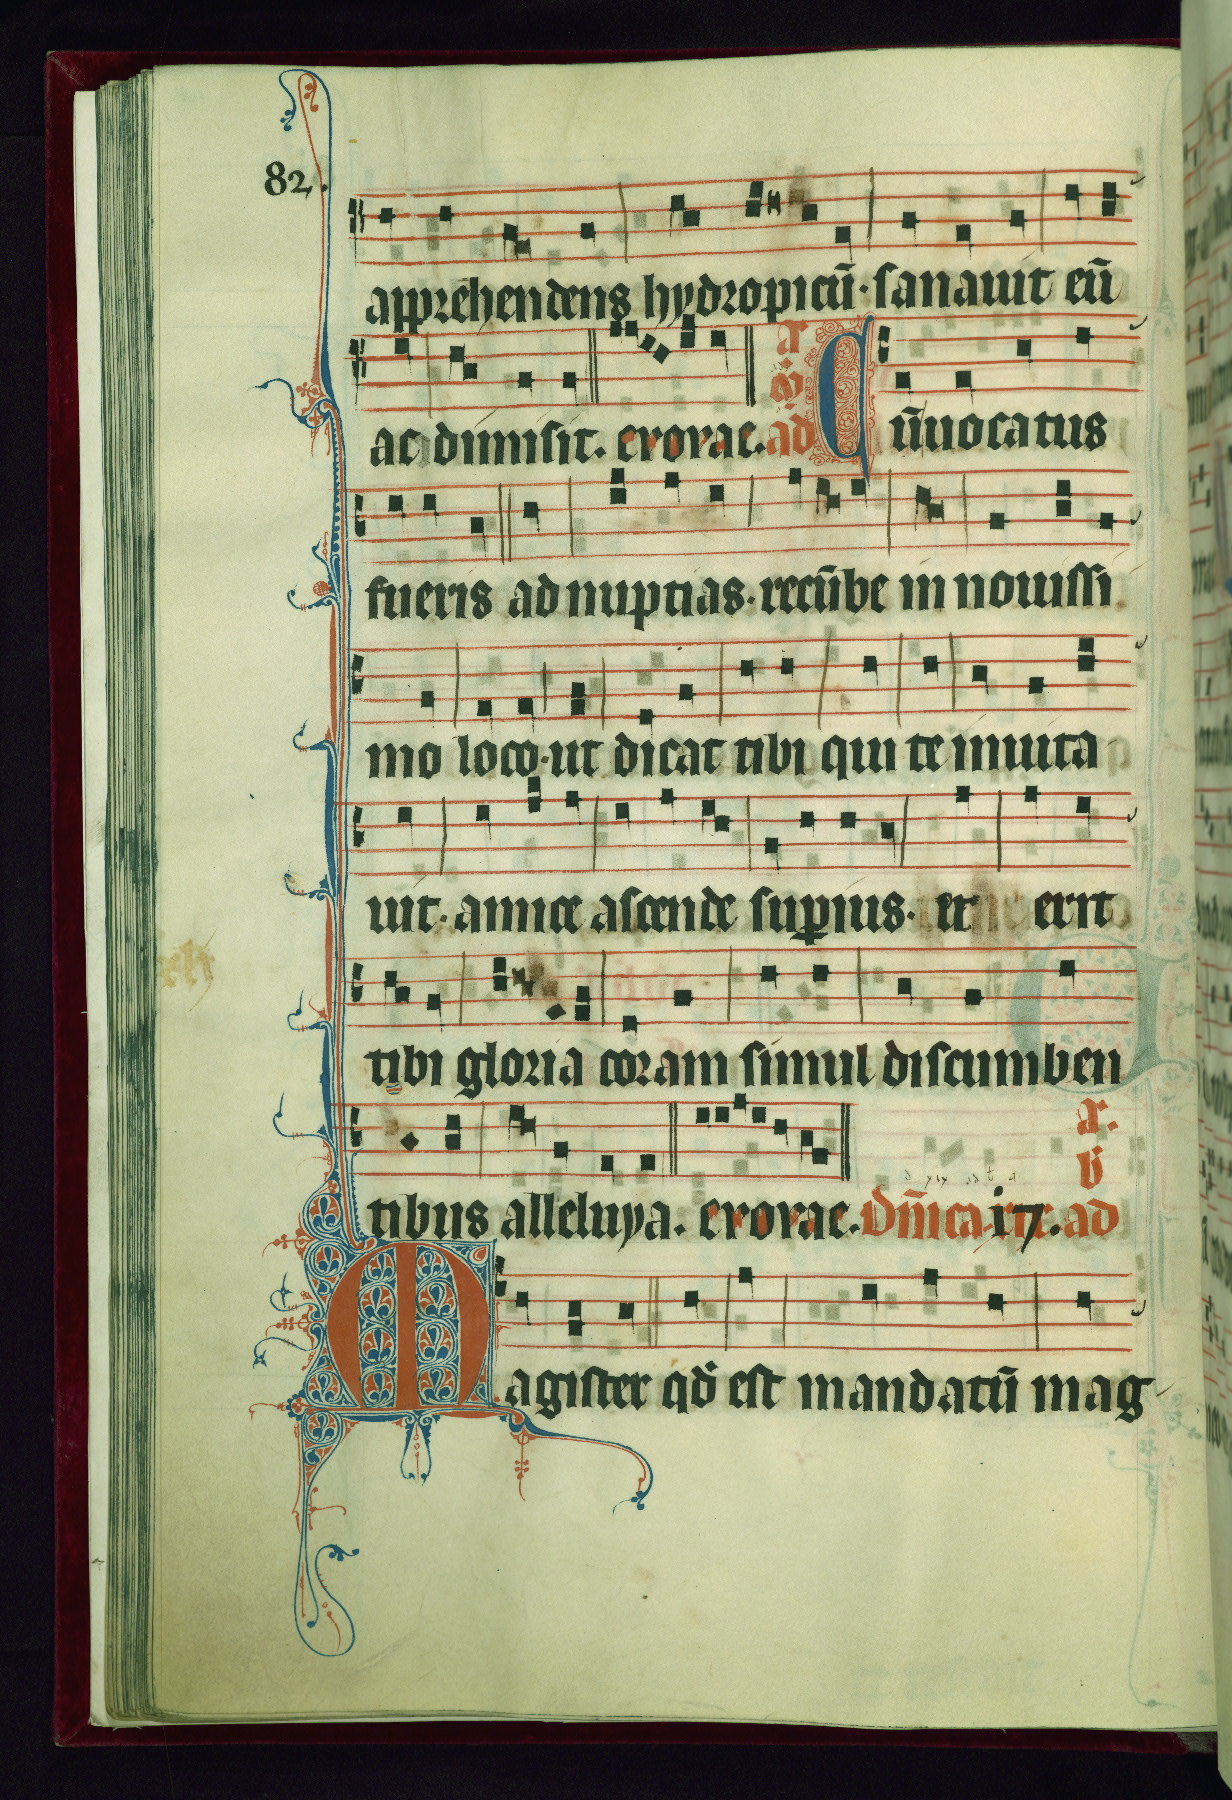 82.
apprehendens hydropicū· sanauit eū
ac dimisit. evovae. ad Cūuocatus
fueris ad nuptias· recūbe in nouissi
mo loco· ut dicat tibi qui te inuita
uit· amice ascende supius· et erit
tibi gloria coram simul discumben
tibus alleluya. evovae. Dn̄ica 17. ad
Magister qd̄ est mandatū mag